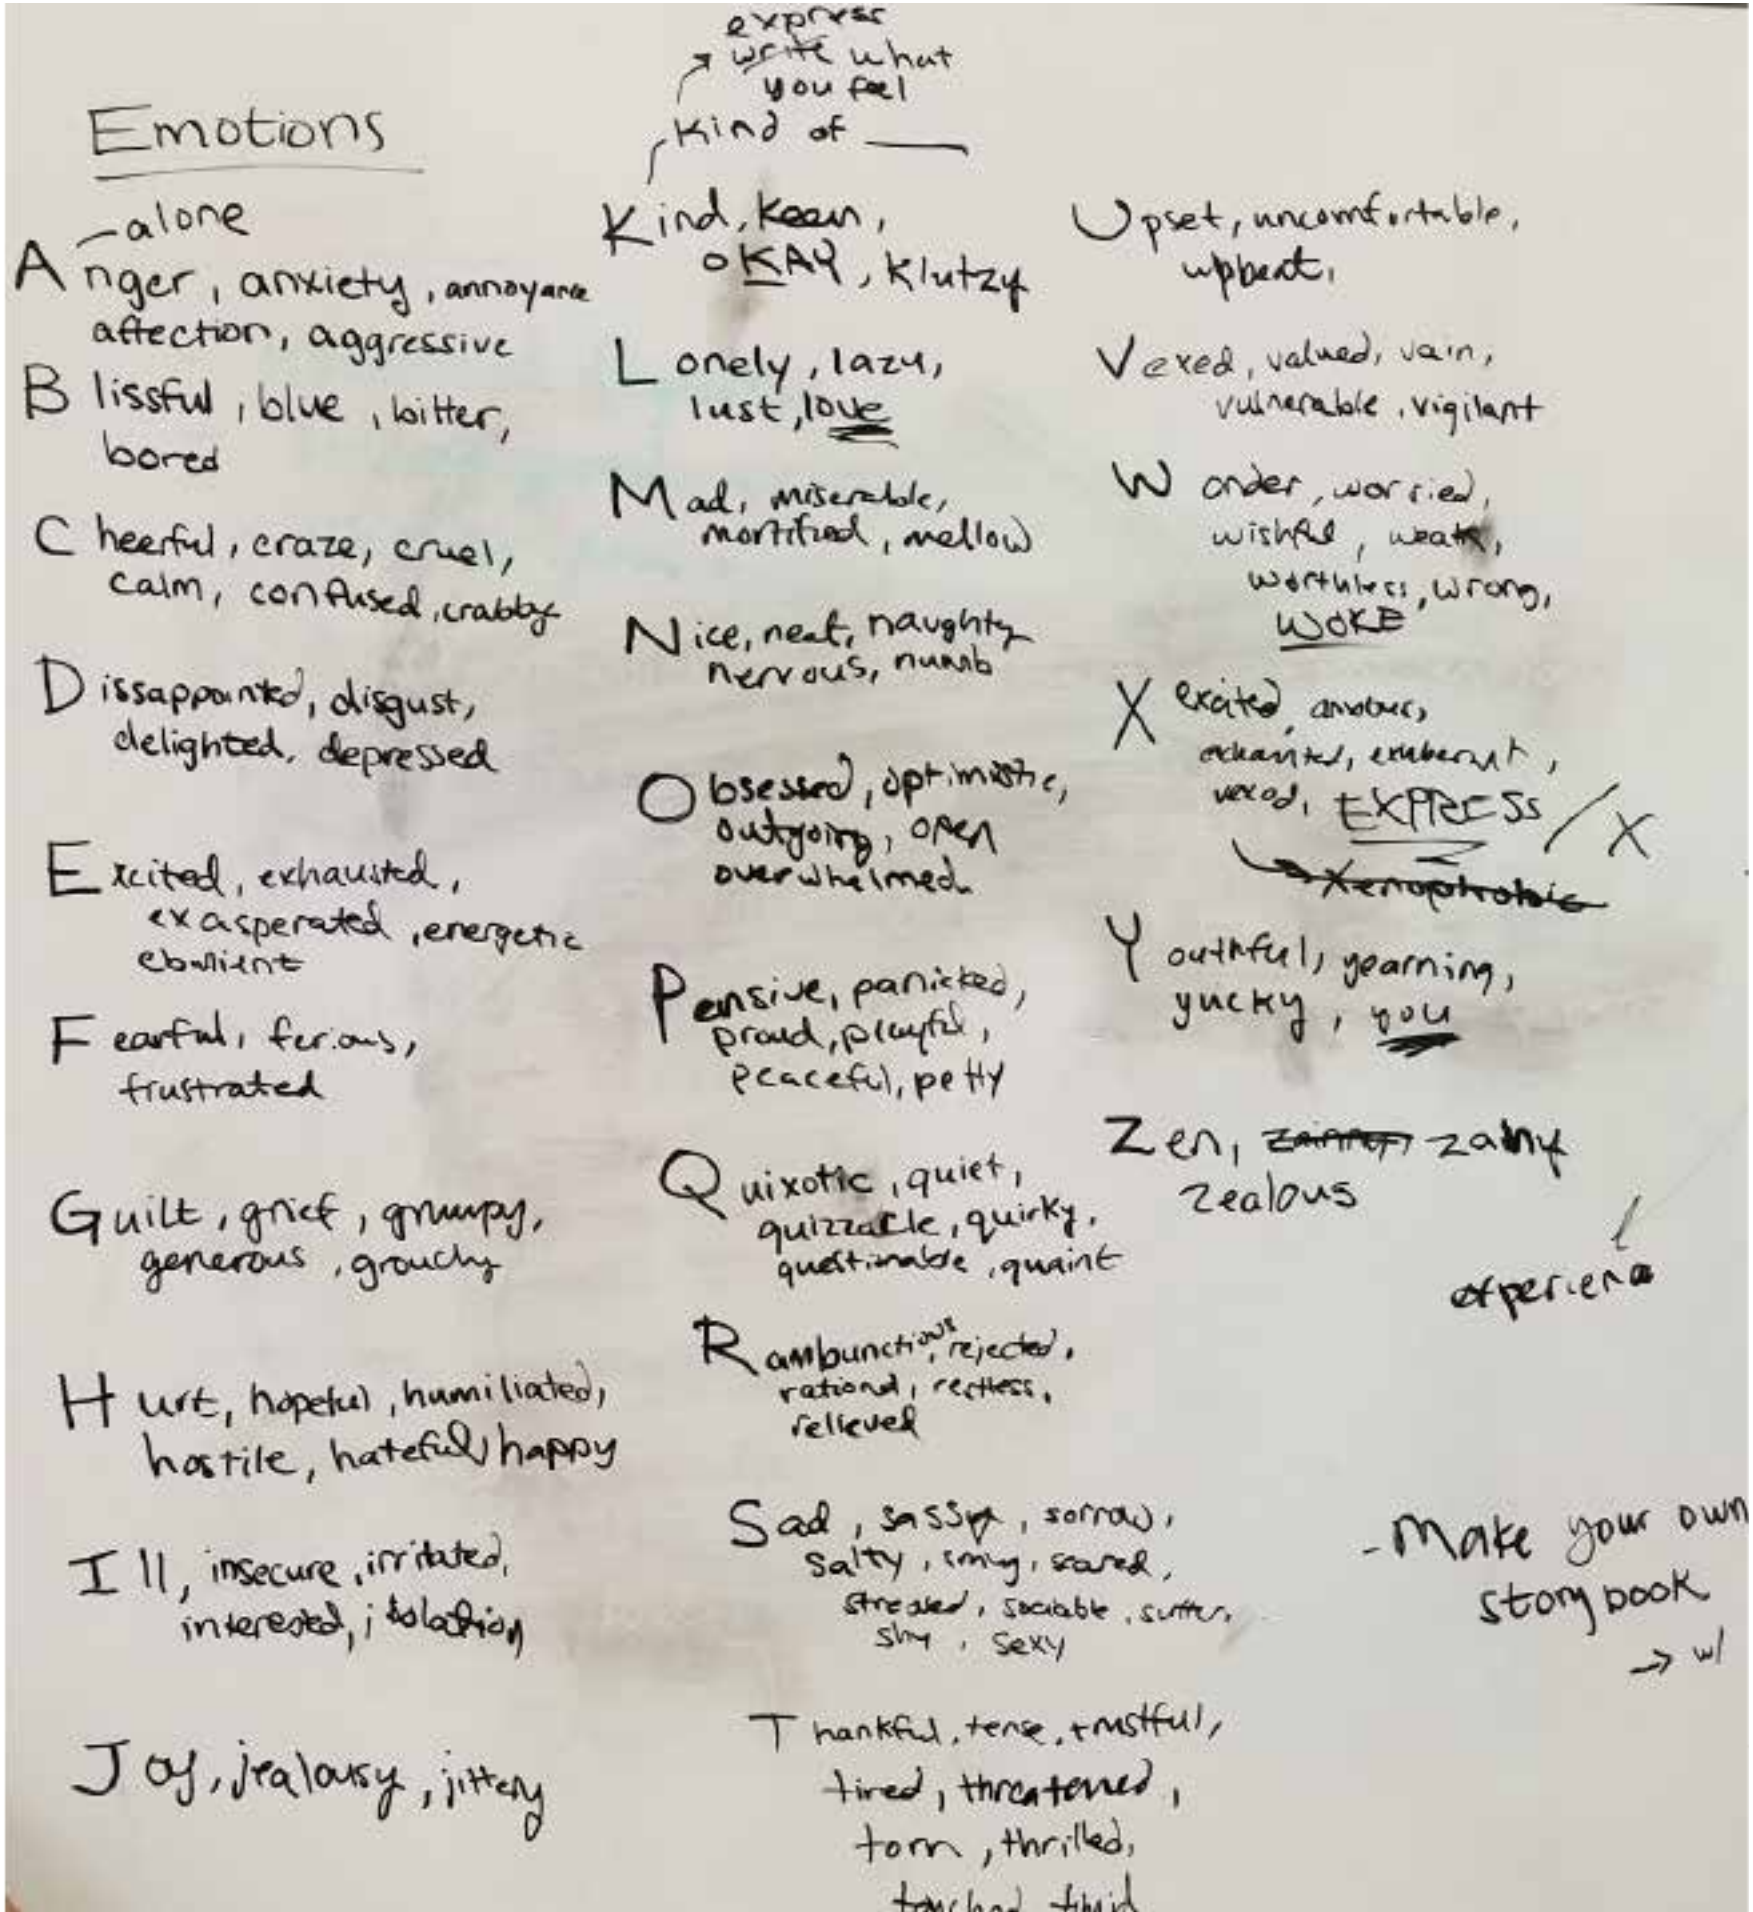 Emotions
-alone
Anger, anxiety, annoyance
affection, aggressive
Blissful, blue, bitter,
bored
Cheerful, craze, cruel,
calm, confused, crabby
Dissappointed, disgust,
delighted, depressed
Excited, exhausted,
exasperated, energetic
Fearful, ferious,
frustrated
Guilt, grief, grumpy,
generous, grouchy
Hurt, hopeful, humiliated,
hostile, hateful, happy
Ill, insecure, irritated,
interested, isolation
Joy, jealousy, jittery
express
write what
you feel
Kind of ___
Kind, keen,
oKAY, klutzy
Lonely, lazy,
lust, love
Mad, miserable,
mortified, mellow
Nice, neat, naughty
nervous, numb
Obsessed, optimistic,
outgoing, open
overwhelmed
Pensive, panicked,
proud, playful,
peaceful, petty
Quixotic, quiet,
quizzacle, quirky,
questionable, quaint
Rambunctious, rejected,
rational, restless,
relieved
Sad, sassy, sorrow,
salty, smug, scared,
stressed, sociable,
shy, sexy
Thankful, tense, trustful,
tired, threatened,
torn, thrilled,
touched, timid
Upset, uncomfortable,
upbeat,
Vexed, valued, vain,
vulnerable, vigilant
Wonder, worried,
wishful, weak,
worthless, wrong,
WOKE
X excited,
exhausted, exuberant,
vexed, EXPRESS / X
Xenophobic
Youthful, yearning,
yucky, you
Zen, zany
zealous
experience
- Make your own
story book
→ w/